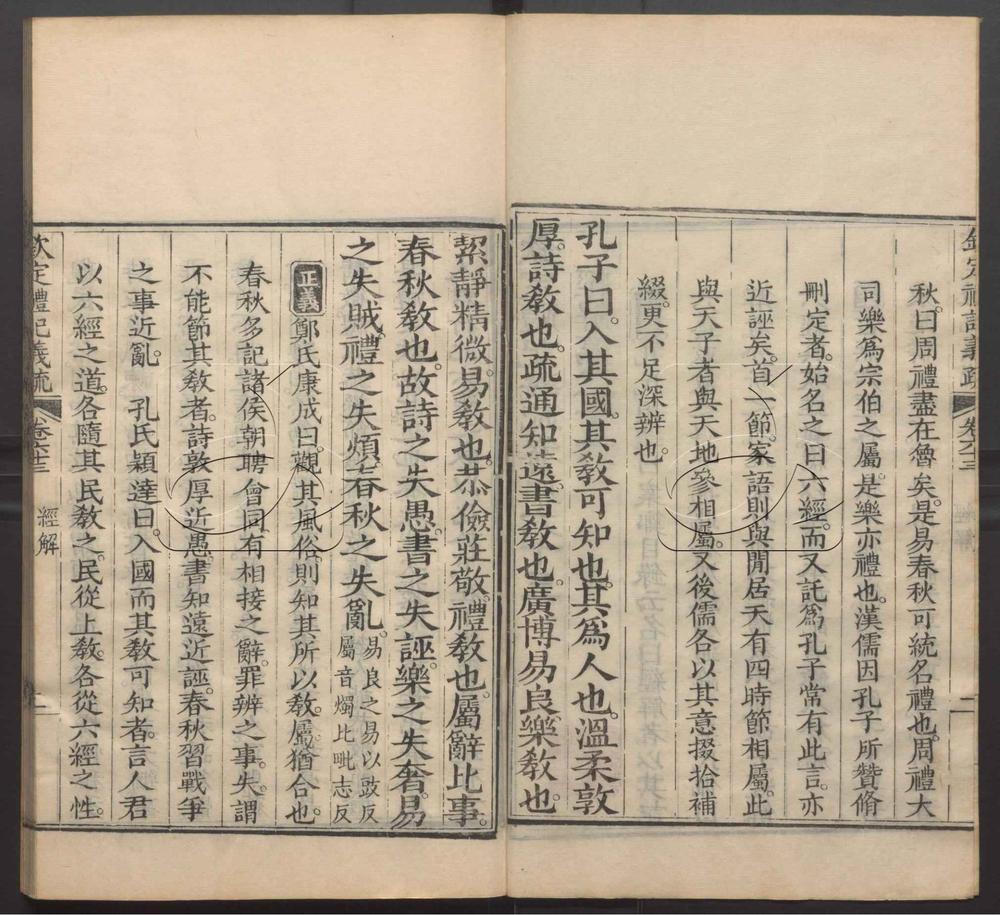 欽定禮記義疏 卷六十三 二
秋。曰周禮盡在魯矣。是易春秋可統名禮也。周禮大
司樂爲宗伯之屬。是樂亦禮也。漢儒因孔子所贊脩
刪定者。始名之曰六經。而又託爲孔子常有此言。亦
近誣矣。首一節。家語則與閒居天有四時節相屬。此
與天子者與天地參相屬。又後儒各以其意掇拾補
綴。更不足深辨也。
孔子曰。入其國。其敎可知也。其爲人也。溫柔敦
厚。詩敎也。疏通知遠。書敎也。廣博易良。樂敎也。
絜靜精微。易敎也。恭儉莊敬。禮敎也。屬辭比事。
春秋敎也。故詩之失愚。書之失誣。樂之失奢。易
之失賊。禮之失煩。春秋之失亂。易良之易以豉反
屬音燭比毗志反
正義 鄭氏康成曰。觀其風俗。則知其所以敎。屬猶合也。
春秋多記諸侯朝聘會同。有相接之辭。罪辨之事。失。謂
不能節其敎者。詩敦厚近愚。書知遠近誣。春秋習戰爭
之事近亂。 孔氏穎達曰。入國而其敎可知者。言人君
以六經之道。各隨其民敎之。民從上敎。各從六經之性。
欽定禮記義疏 卷六十三 經解